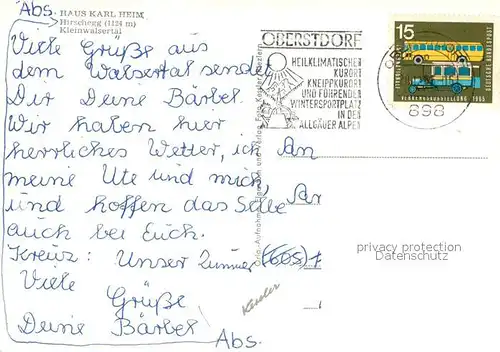 Abs.
HAUS KARL HEIM
Hirschegg (1124 m)
Kleinwalsertal
Viele Grüße aus
dem Walsertal sendet
Dir Deine Bärbel.
Wir haben hier
herrliches Wetter, ich
meine Ute und mich,
und hoffen das
auch bei Euch.
Kreuz: Unser Zimmer (605)
Viele
Grüße
Deine Bärbel
Abs.
An
OBERSTDORF
HEILKLIMATISCHER
KURORT
KNEIPPKURORT
UND FÜHRENDER
WINTERSPORTPLATZ
IN DEN
ALLGÄUER ALPEN
15
DEUTSCHE BUNDESPOST
VERKEHRSAUSSTELLUNG 1965
898
privacy protection
Datenschutz